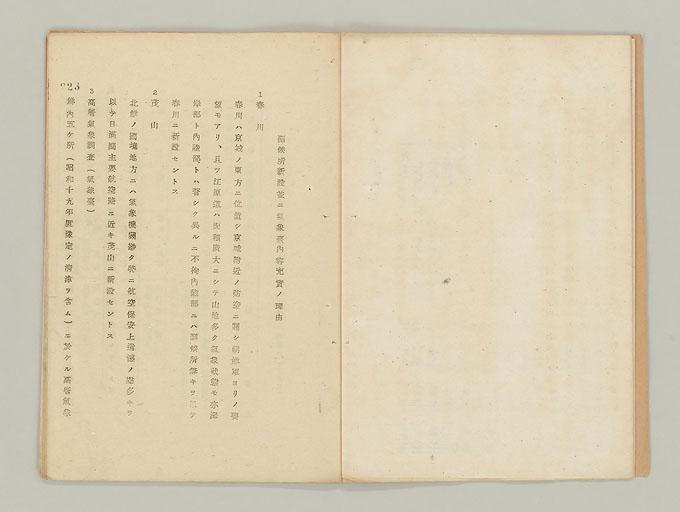 測候所新設並ニ氣象臺內容充實ノ理由
1 春川
春川ハ京城ノ東方ニ位置シ京城附近ノ防空ニ關シ朝鮮軍ヨリノ要
望モアリ、且ツ江原道ハ面積廣大ニシテ山地多ク氣象狀態モ亦海
岸部ト內陸部トハ著シク異ルニ不拘內陸部ニハ測候所無キヲ以テ
春川ニ新設セントス
2 茂山
北鮮ノ國境地方ニハ氣象機關尠ク特ニ航空保安上遺憾ノ點多キヲ
以テ日滿間主要航空路ニ近キ茂山ニ新設セントス
3 高層氣象調査(氣象臺)
鮮內五ケ所(昭和十九年度豫定ノ清津ヲ含ム)ニ於ケル高層氣象
023